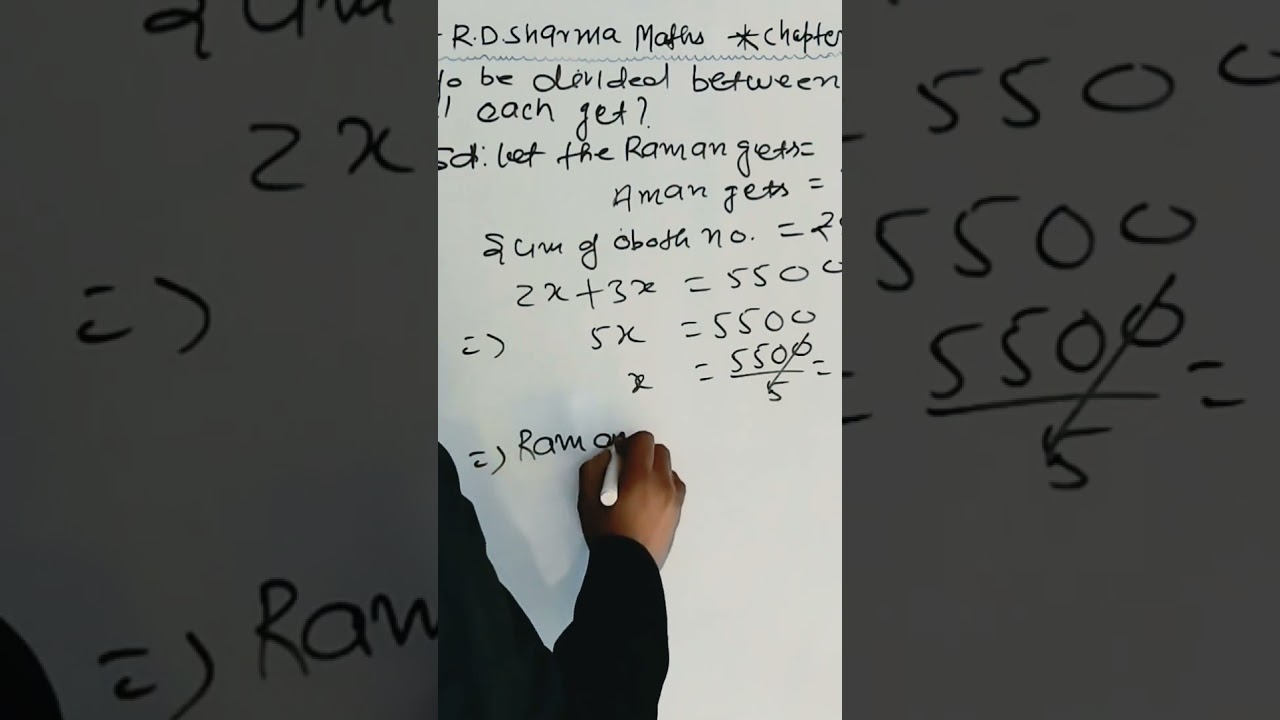 R.D.Sharma Maths * Chapter
to be divided between
each get?
Sol: Let the Raman gets=
Aman gets =
Sum of both no. = 2
2x+3x = 5500
=) 5x = 5500
x = 5500/5 =
=) Raman